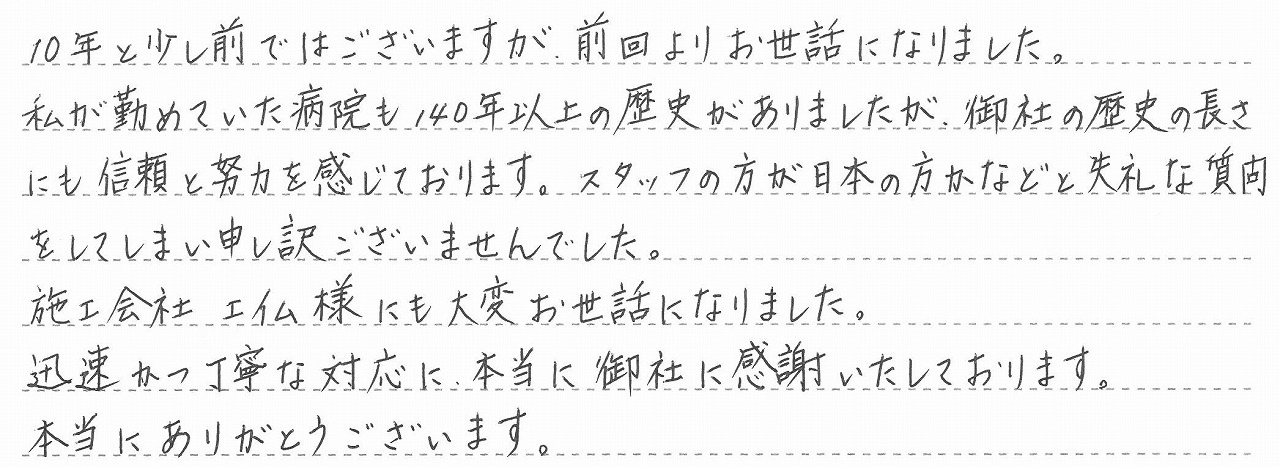 10年と少し前ではございますが、前回よりお世話になりました。
私が勤めていた病院も140年以上の歴史がありましたが、御社の歴史の長さ
にも信頼と努力を感じております。スタッフの方が日本の方かなどと失礼な質問
をしてしまい申し訳ございませんでした。
施工会社 エイム様にも大変お世話になりました。
迅速かつ丁寧な対応に、本当に御社に感謝いたしております。
本当にありがとうございます。